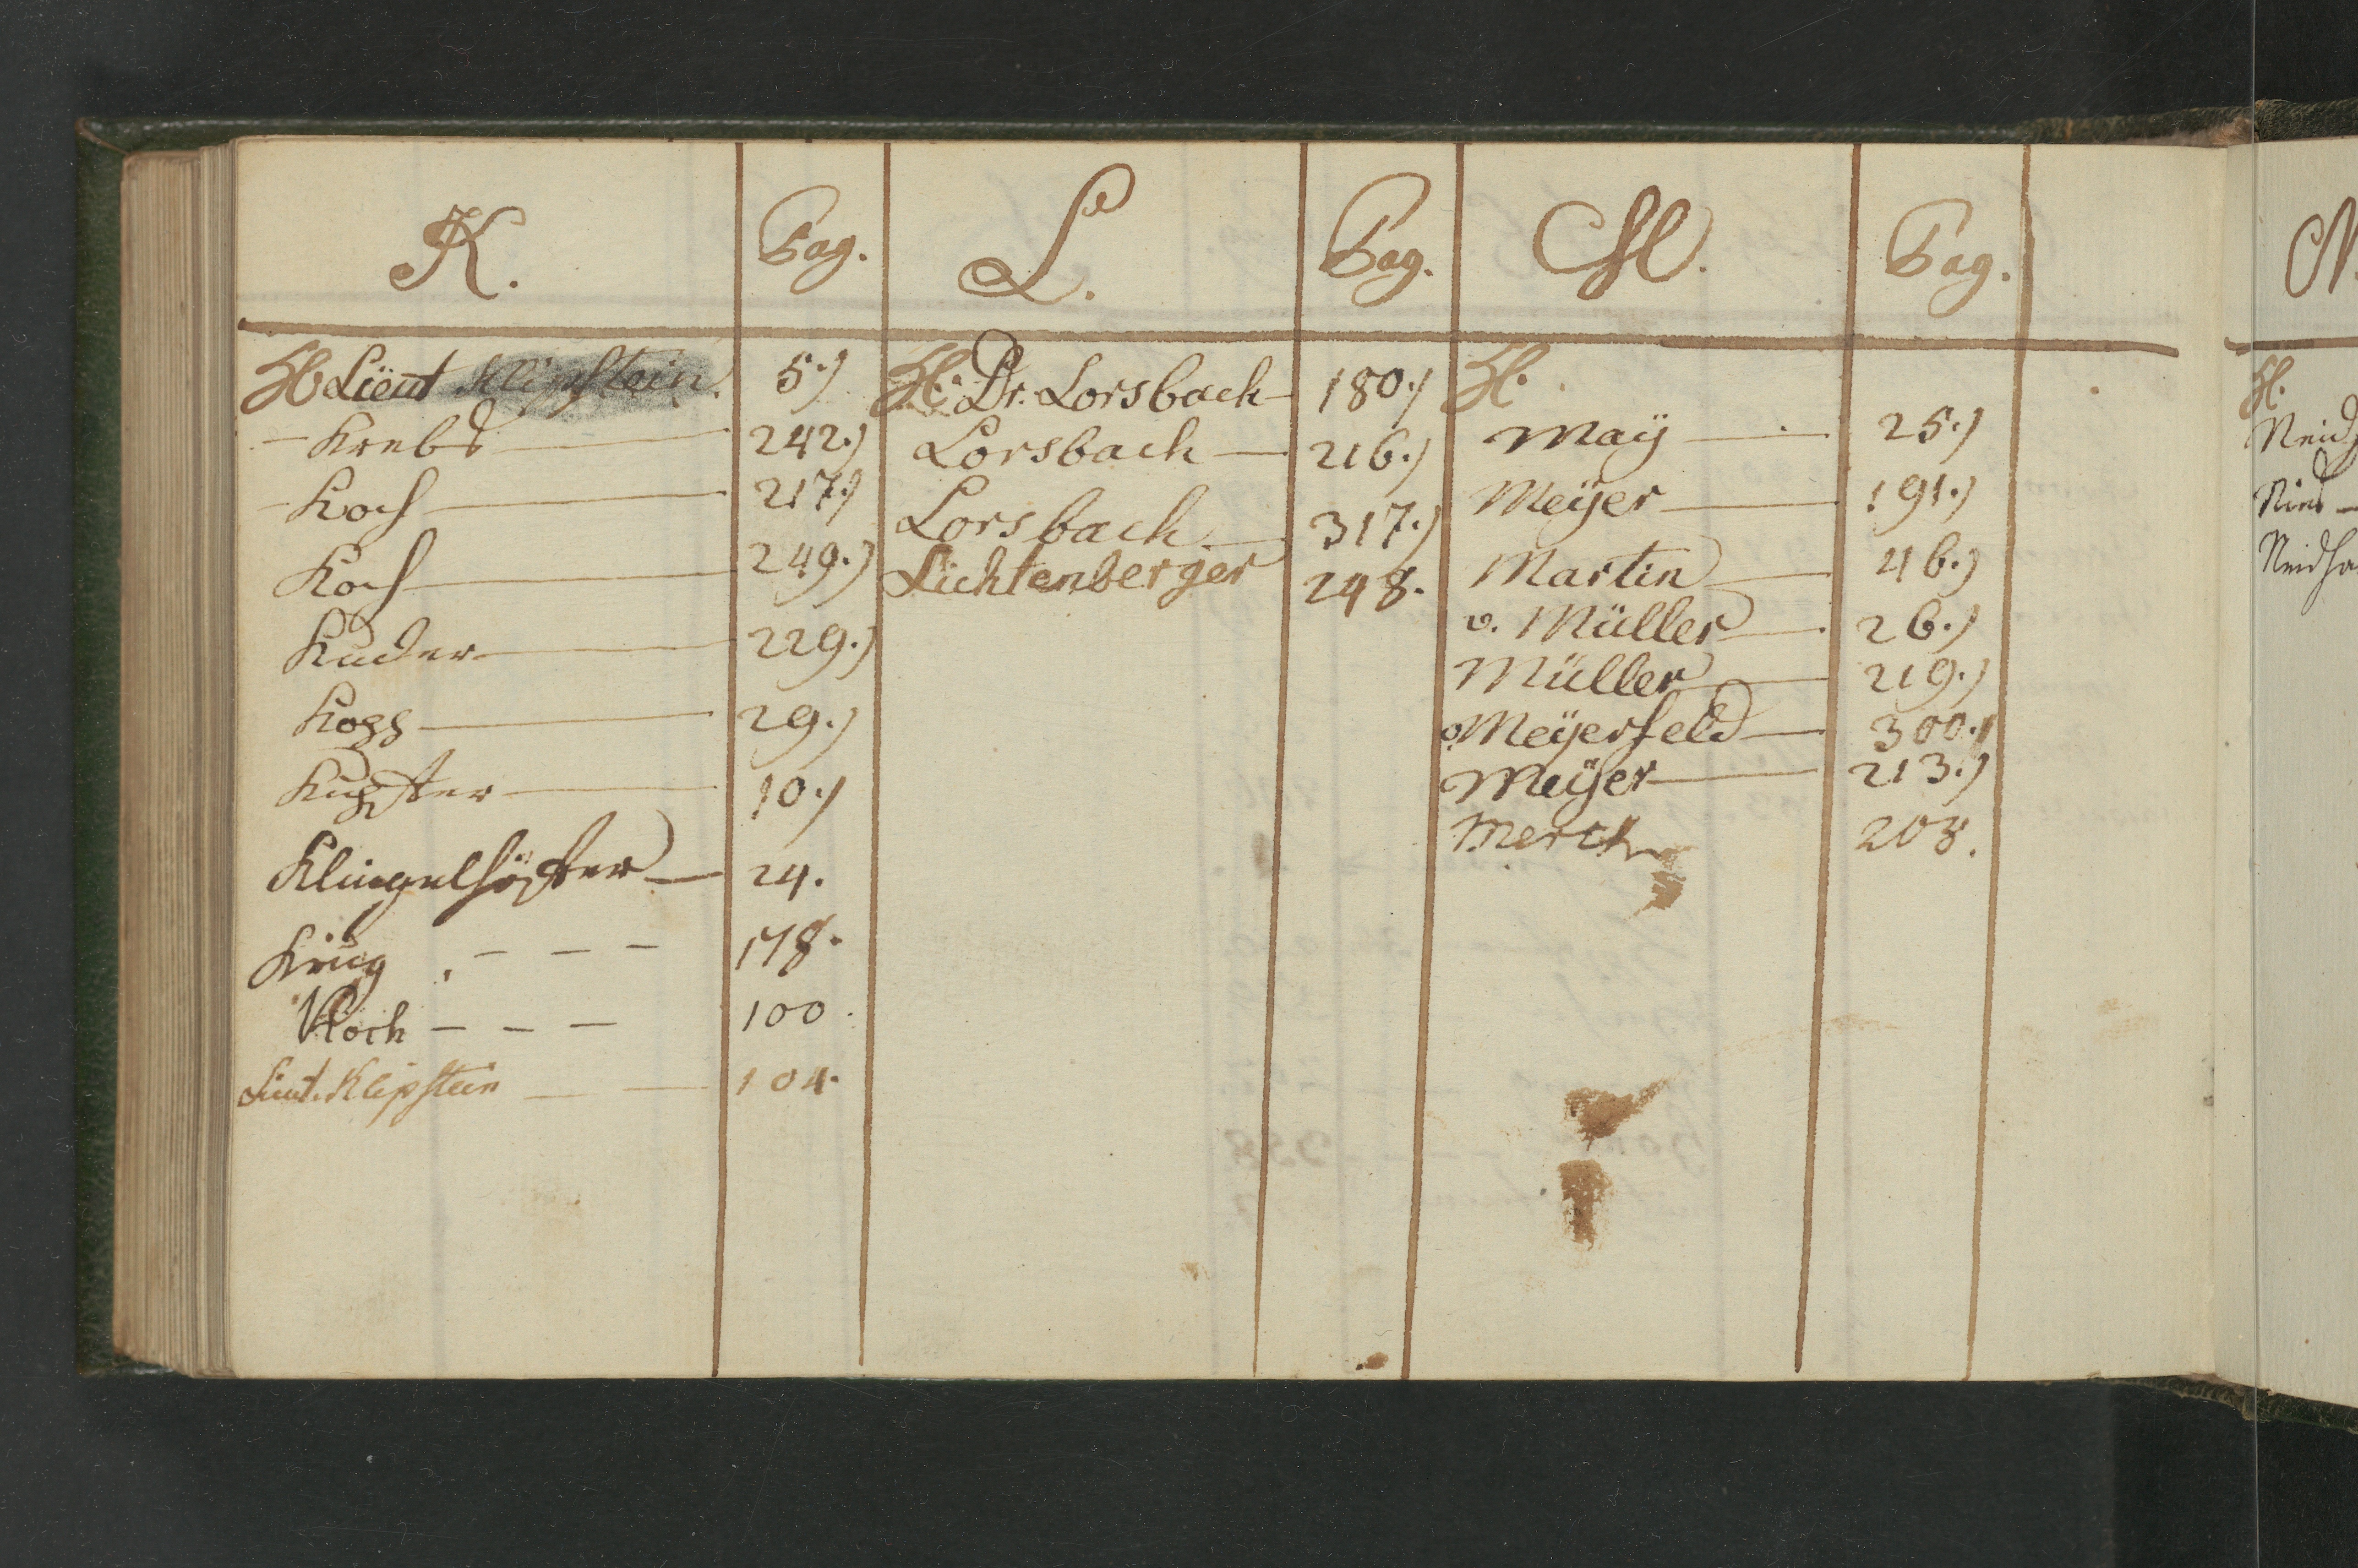 K. Pag. L. Pag. M. Pag.
H. Lieut Klipstein. 5.) H. Dr. Lorsbach 180.) H.
- Krebs 242.) Lorsbach 216.) Maÿ 25.)
- Koch 217.) Lorsbach 317.) Meÿer 191.)
Koch 249.) Lichtenberger 248. Martin 46.)
Kuder 229.) v. Müller 26.)
Kopp 29.) Müller 219.)
Kupfter 10.) v. Meÿerfeld 300.)
Klingelhöffer 24. Meÿer 213.)
Krug - - - 178. Merck 208.
Koch - - - 100.
Lieut. Klipstein 104.
N.
H.
Neidh
Nies
Neidha